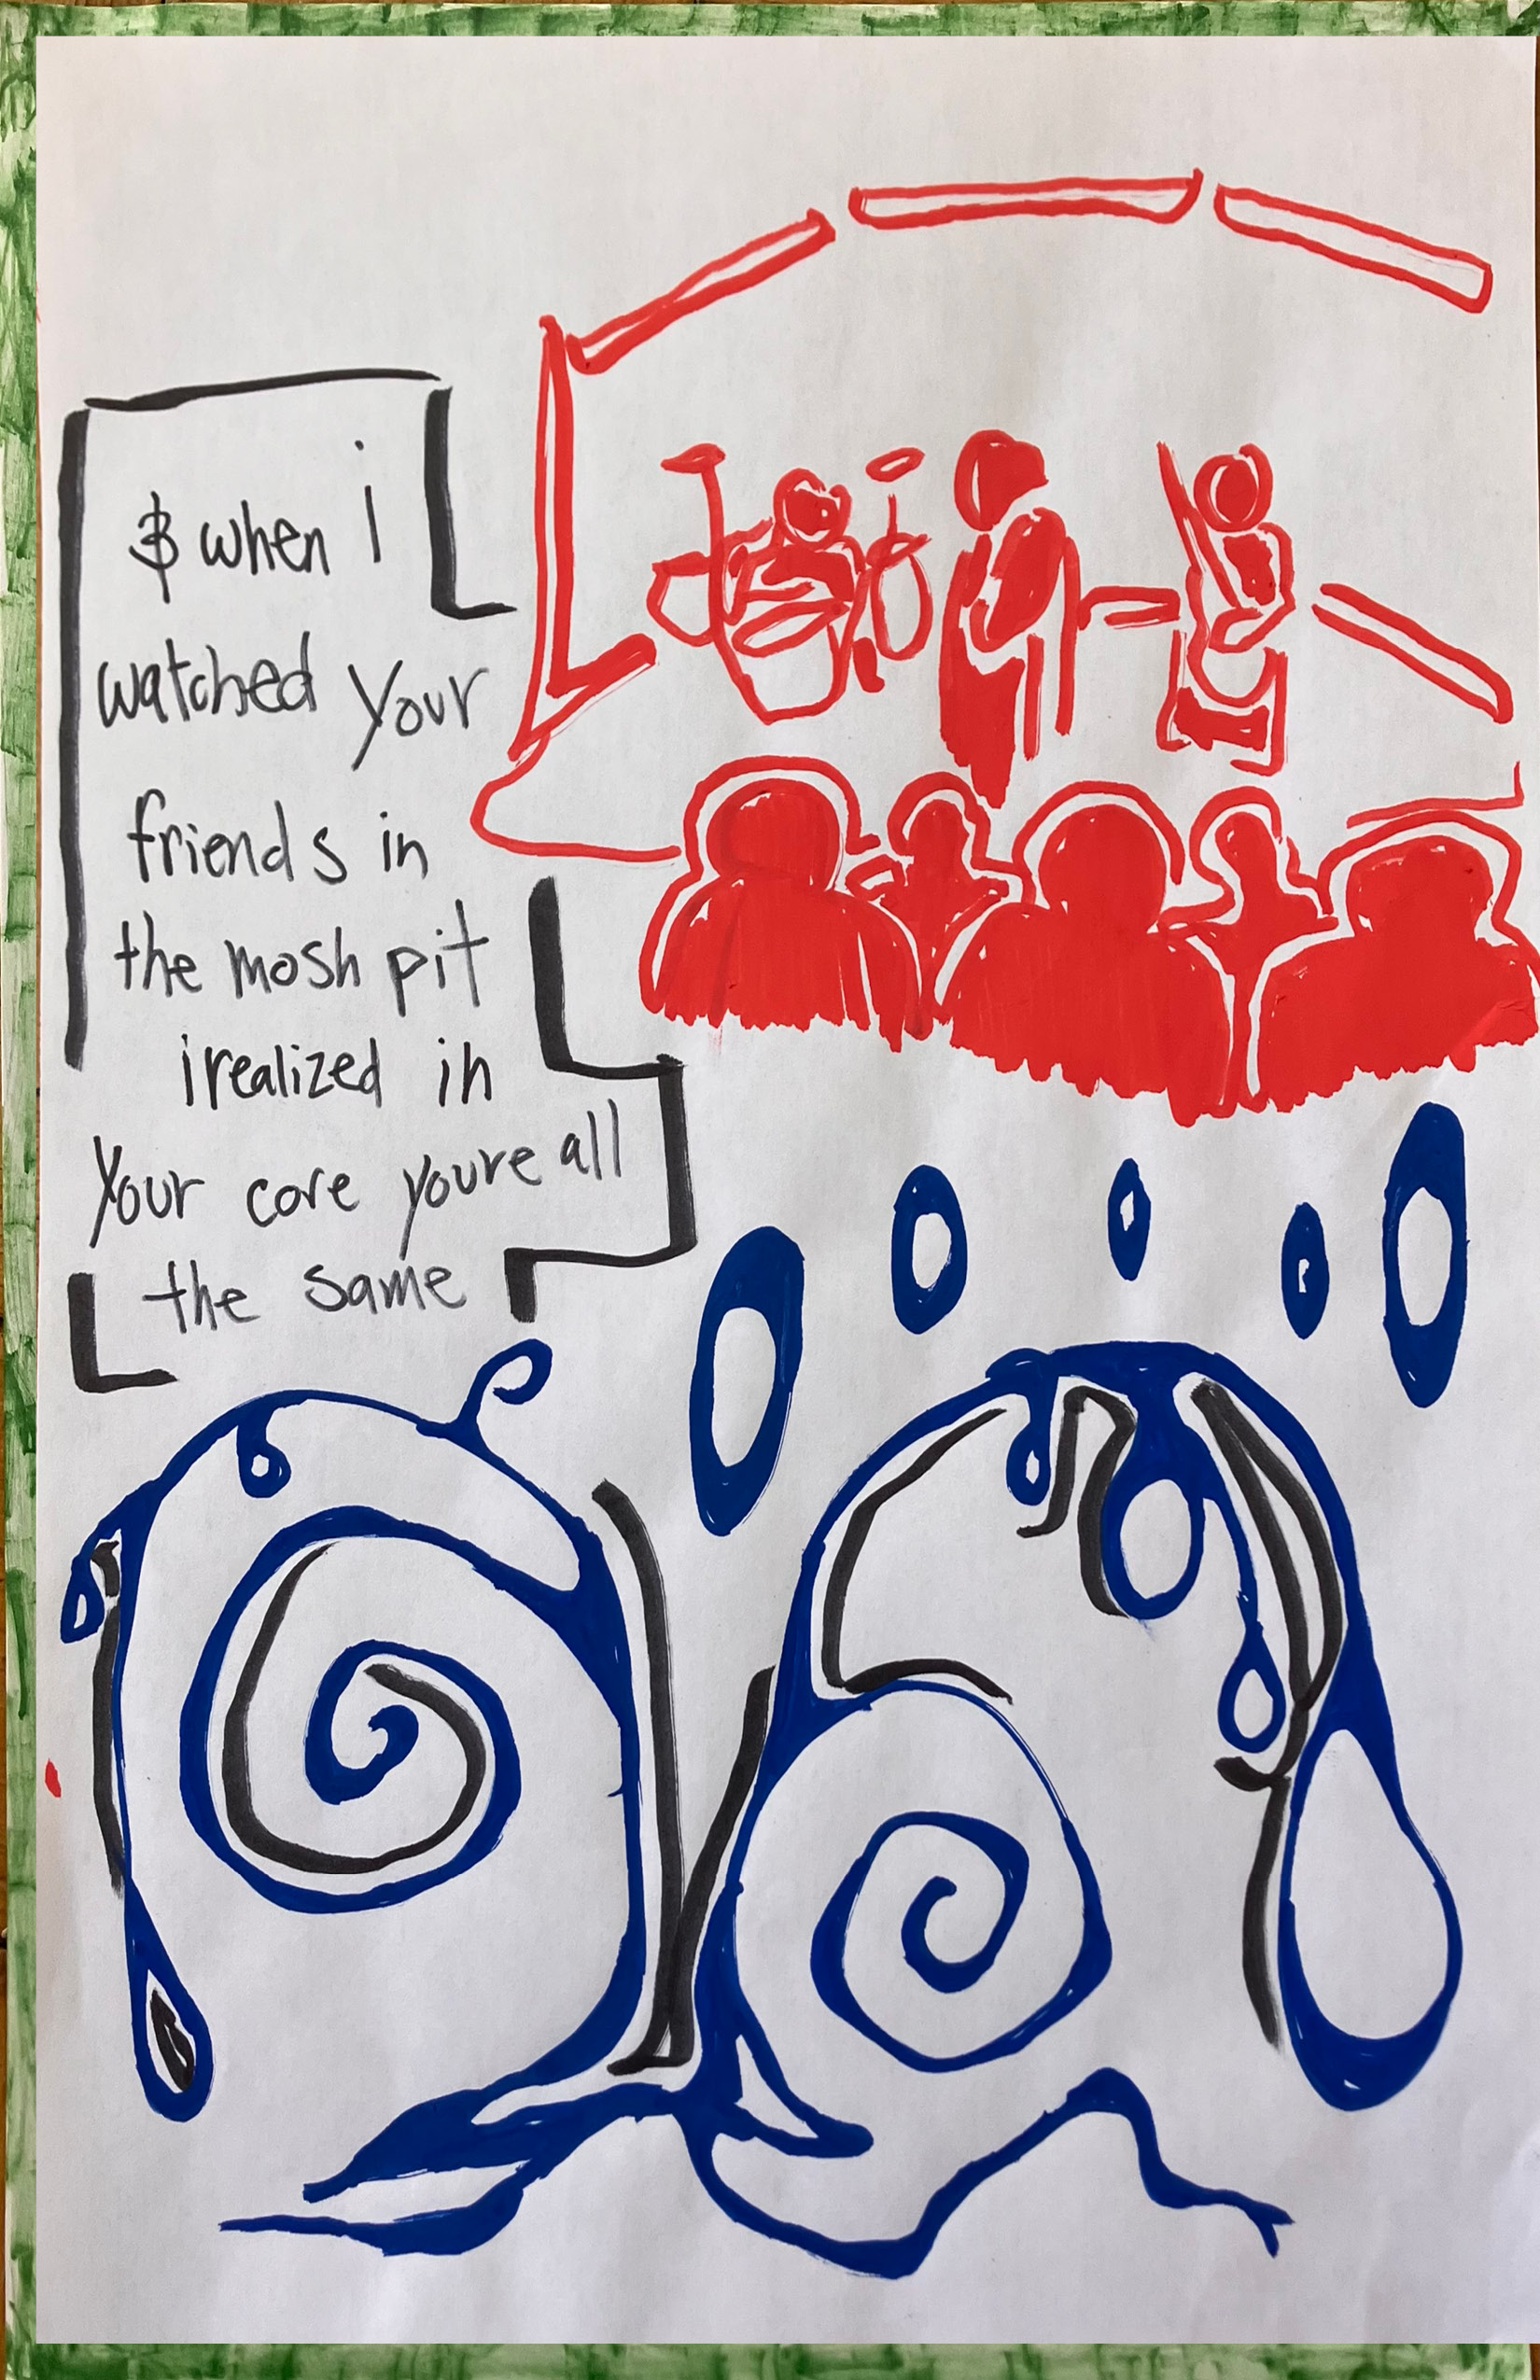 & when i
watched your
friends in
the mosh pit
i realized in
your core youre all
the same